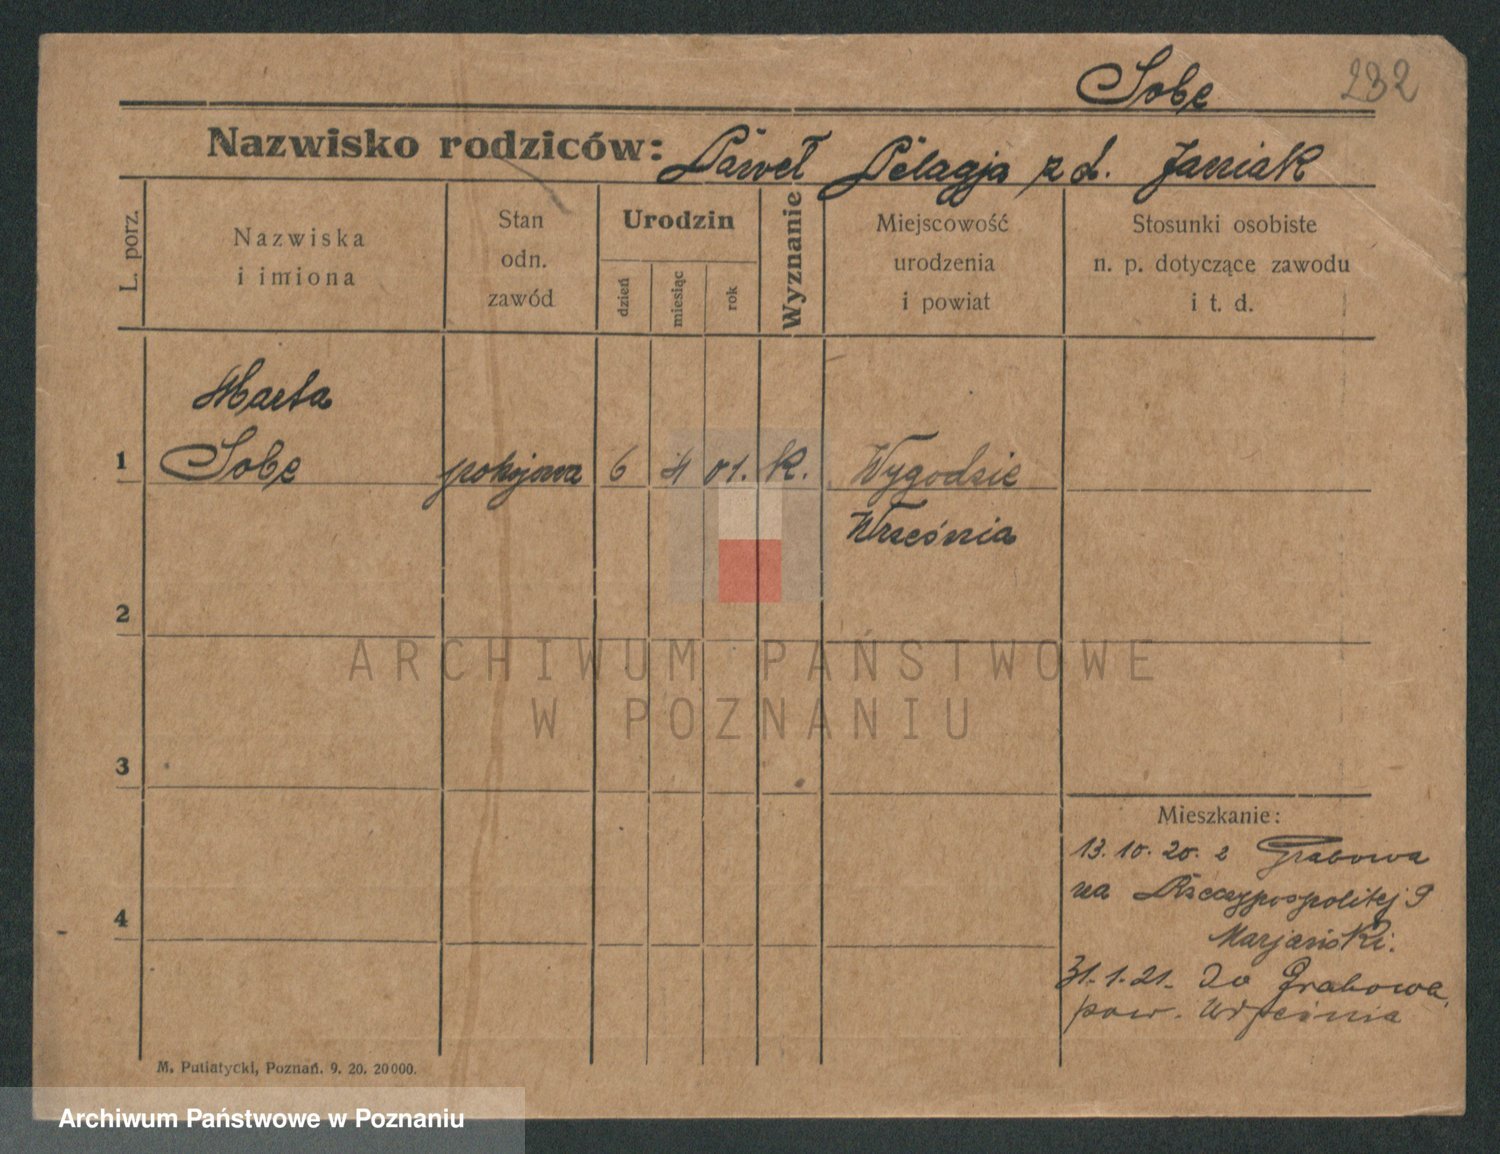 Sobe 232
Nazwisko rodziców: Paweł Pelagja z d. Janiak
L. porz.
Nazwiska
i imiona
Stan
odn.
zawód
Urodzin
dzień
miesiąc
rok
Wyznanie
Miejscowość
urodzenia
i powiat
Stosunki osobiste
n. p. dotyczące zawodu
i t. d.
Marta
1 Sobe pokojowa 6 4 01. K. Wygodzie
Września
2
ARCHIWUM PAŃSTWOWE
W POZNANIU
3
Mieszkanie:
13. 10. 20. z Grabowa
4 na Rzeczypospolitej 9
Marjański.
31. 1. 21. do Grabowa,
pow. Września
M. Putiatycki, Poznań. 9. 20. 20000.
Archiwum Państwowe w Poznaniu